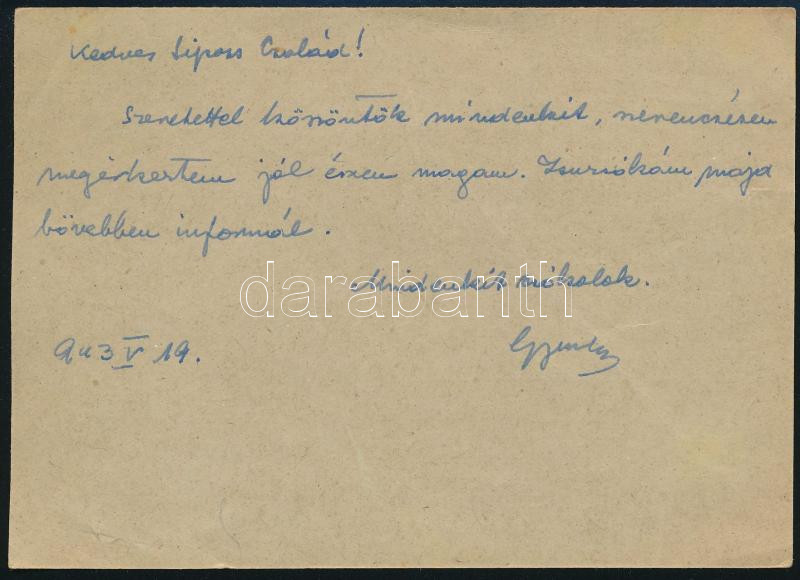 Kedves Siposs Család!
Szeretettel köszöntök mindenkit, szerencsésen
megérkertem jól érzem magam. majd
bővebben informál.
Mindenkit csókolok.
943 V 19.
darabanth